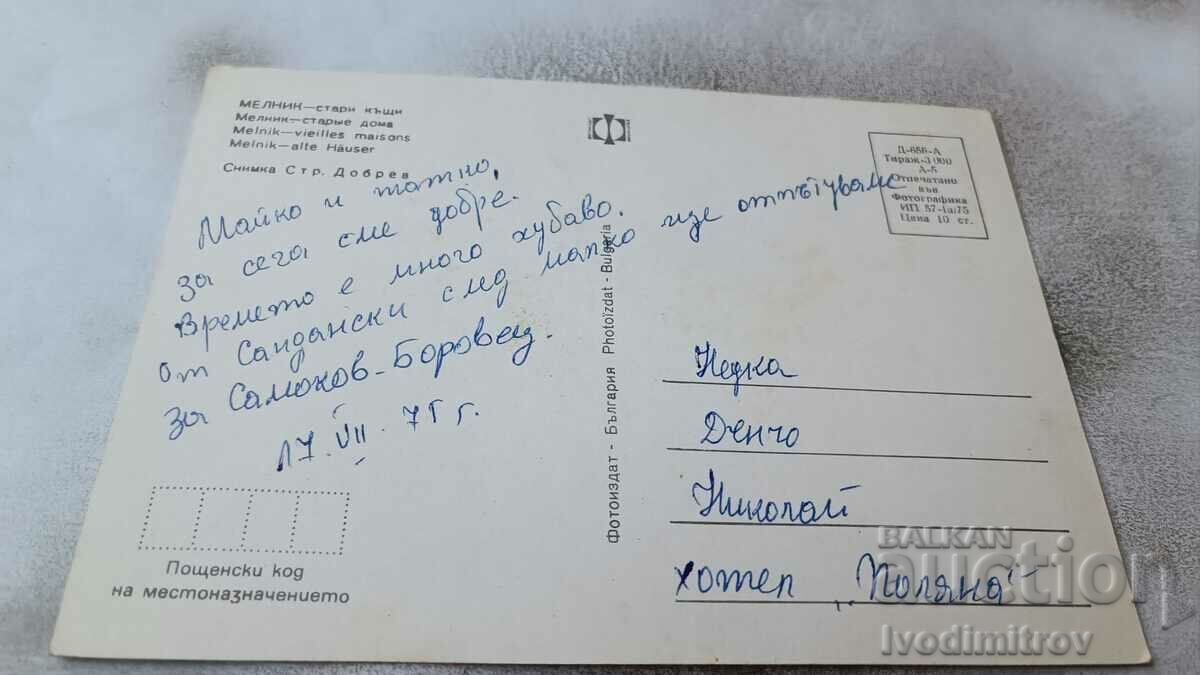 МЕЛНИК—стари къщи
Мелник—старые дома
Melnik—vieilles maisons
Melnik—alte Häuser
Снимка Стр. Добрев
Майко и татко,
за сега сме добре.
Времето е много хубаво.
От Сандански след малко ще отпътуваме
за Самоков-Боровец.
17. VII. 75 г.
Пощенски код
на местоназначението
Фотоиздат - България Photoizdat - Bulgaria
Д-656-А
Тираж-3 000
А-5
Отпечатани
във
Фотографика
ИП 57-Iа/75
Цена 10 ст.
Недка
Денчо
Николай
хотел „Поляна"
BALKAN
auction
Ivodimitrov